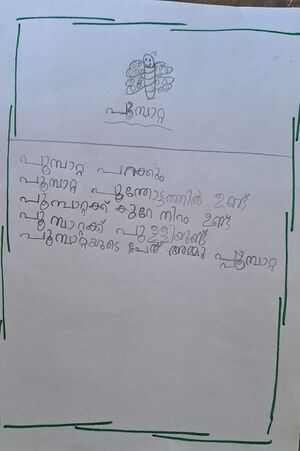 പൂമ്പാറ്റ
പൂമ്പാറ്റ പറക്കും
പൂമ്പാറ്റ പൂന്തോട്ടത്തിൽ ഉണ്ട്
പൂമ്പാറ്റക്ക് കുറേ നിറം ഉണ്ട്
പൂമ്പാറ്റക്ക് പുള്ളിയുണ്ട്
പൂമ്പാറ്റയുടെ പേര് അമ്മു പൂമ്പാറ്റ